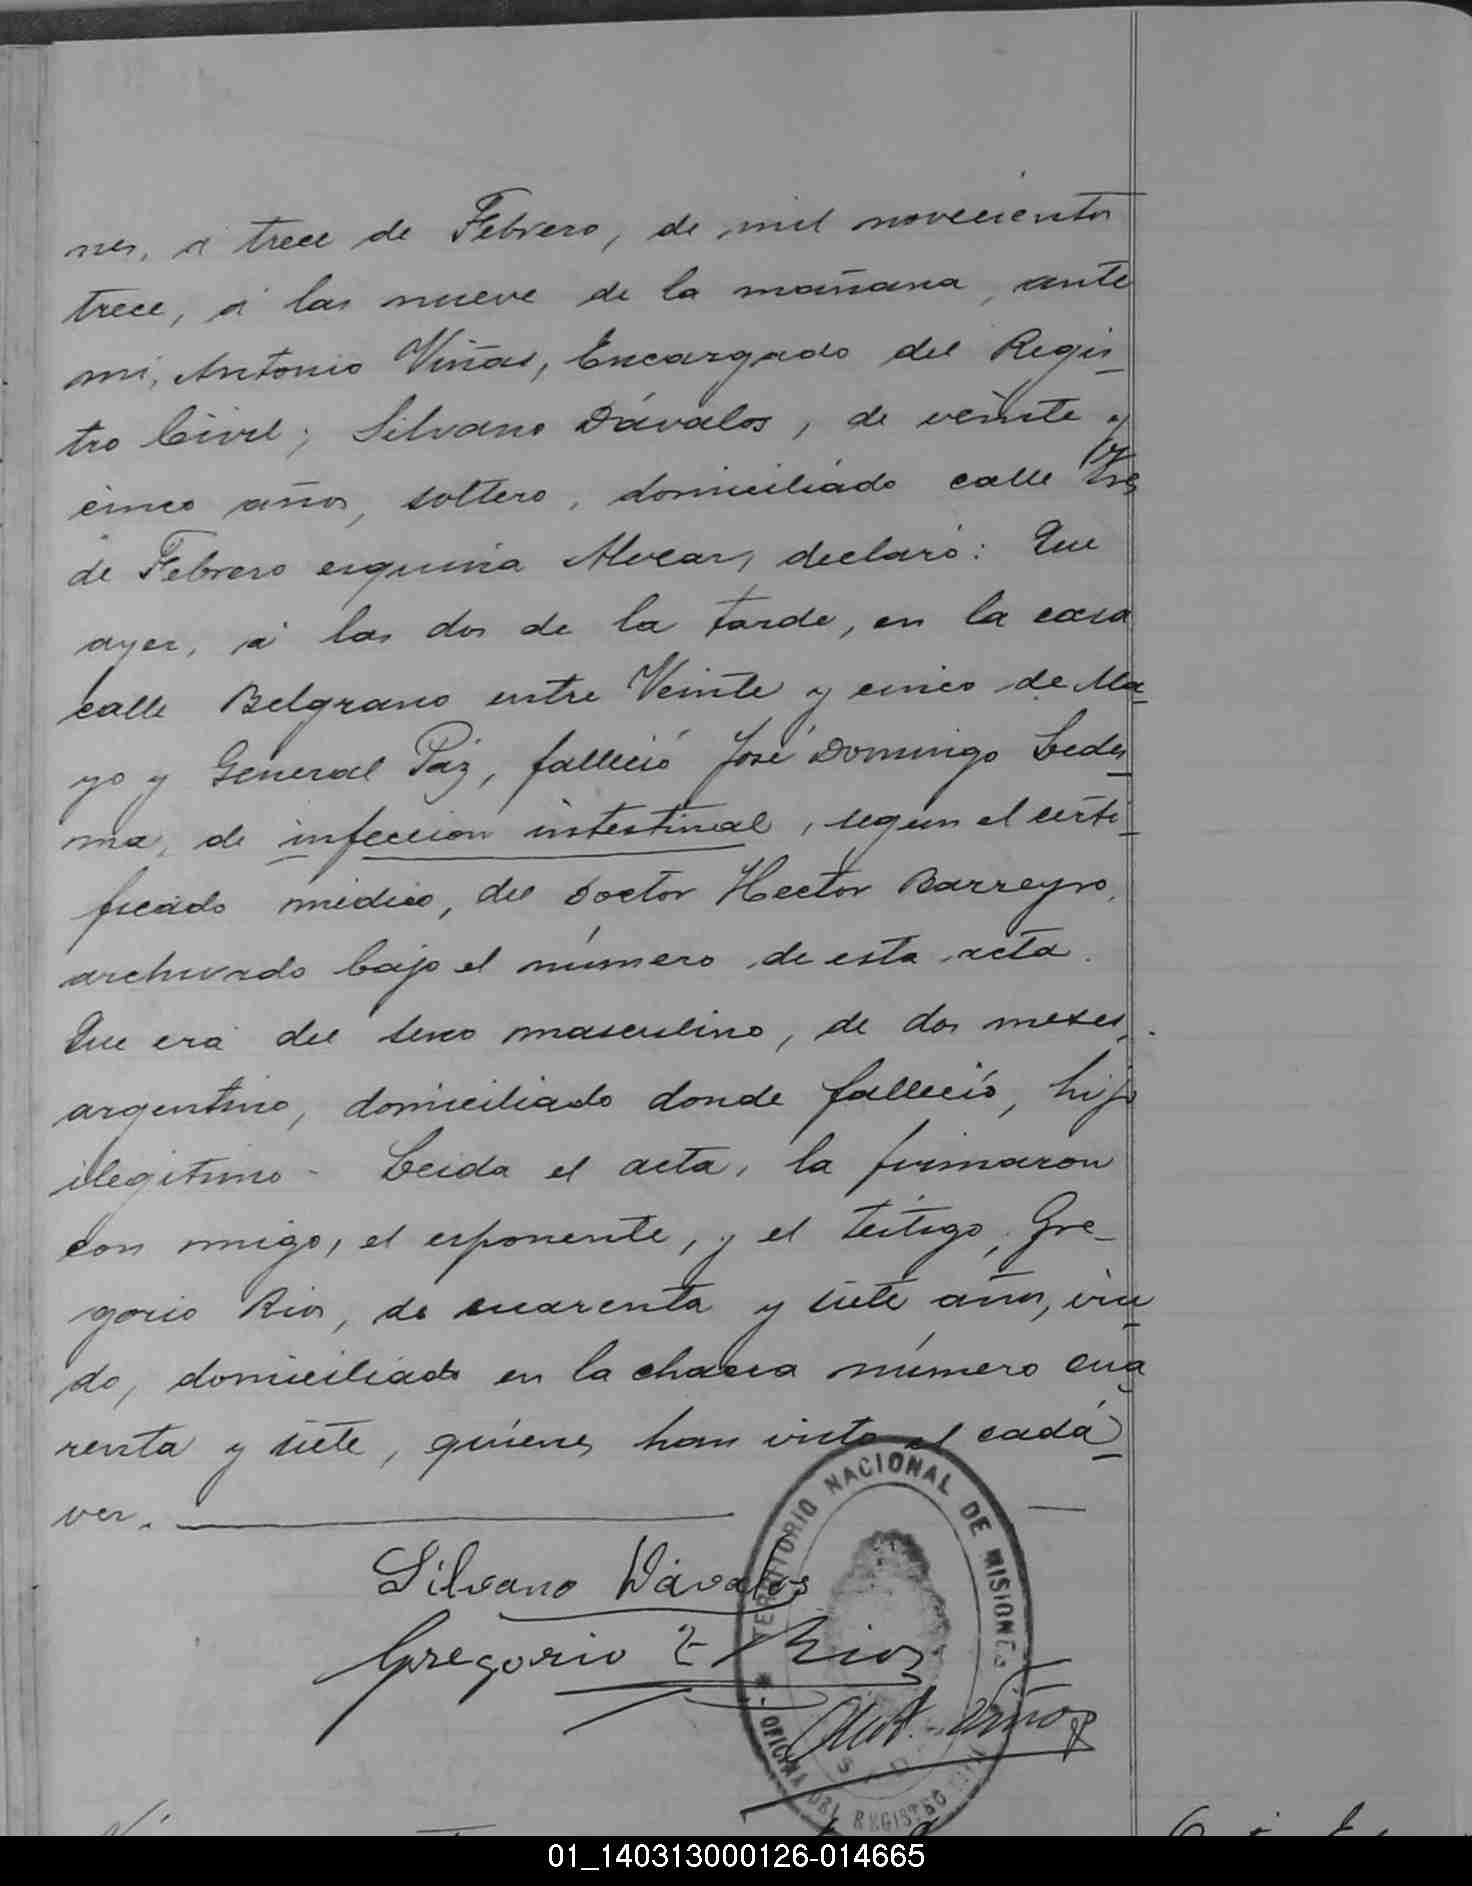 nes, á trece de Febrero, de mil novecientos
trece, á las nueve de la mañana, ante
mi, Antonio Viñas, Encargado del Regis-
tro Civil; Silvano Dávalos, de veinte y
cinco años, soltero, domiciliado calle Tres
de Febrero esquina Alvear, declaró: Que
ayer, á las dos de la tarde, en la casa
calle Belgrano entre Veinte y cinco de Ma-
yo y General Paz, falleció José Domingo Ledes-
ma, de infeccion intestinal, segun el certi-
ficado médico, del Doctor Hector Barreyro,
archivado bajo el número de esta acta.
Que era del sexo masculino, de dos meses,
argentino, domiciliado donde falleció, hijo
ilegitimo - Leida el acta, la firmaron
con migo, el esponente, y el testigo, Gre-
gorio Rios, de cuarenta y siete años, viu-
do, domiciliado en la chacra número cua-
renta y siete, quienes han visto el cadá-
ver.
Silvano Dávalos
Gregorio Rios
Ant. Viñas
TERRITORIO NACIONAL DE MISIONES
OFICINA DEL REGISTRO
01_140313000126-014665